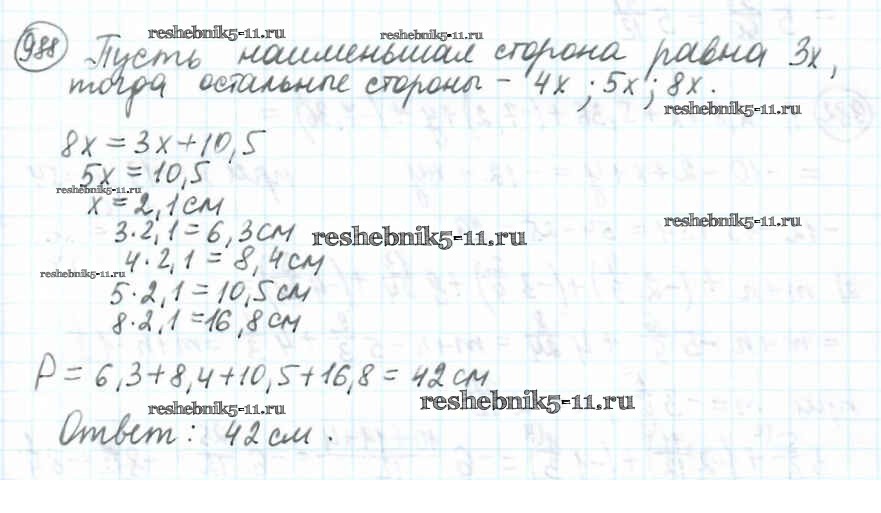 reshebnik5-11.ru
reshebnik5-11.ru
988 Пусть наименьшая сторона равна 3x,
тогда остальные стороны - 4x; 5x; 8x.
reshebnik5-11.ru
8x = 3x + 10,5
5x = 10,5
reshebnik5-11.ru
x = 2,1 см
reshebnik5-11.ru
3 · 2,1 = 6,3 см
reshebnik5-11.ru
4 · 2,1 = 8,4 см
reshebnik5-11.ru
5 · 2,1 = 10,5 см
8 · 2,1 = 16,8 см
P = 6,3 + 8,4 + 10,5 + 16,8 = 42 см
reshebnik5-11.ru
reshebnik5-11.ru
Ответ: 42 см.